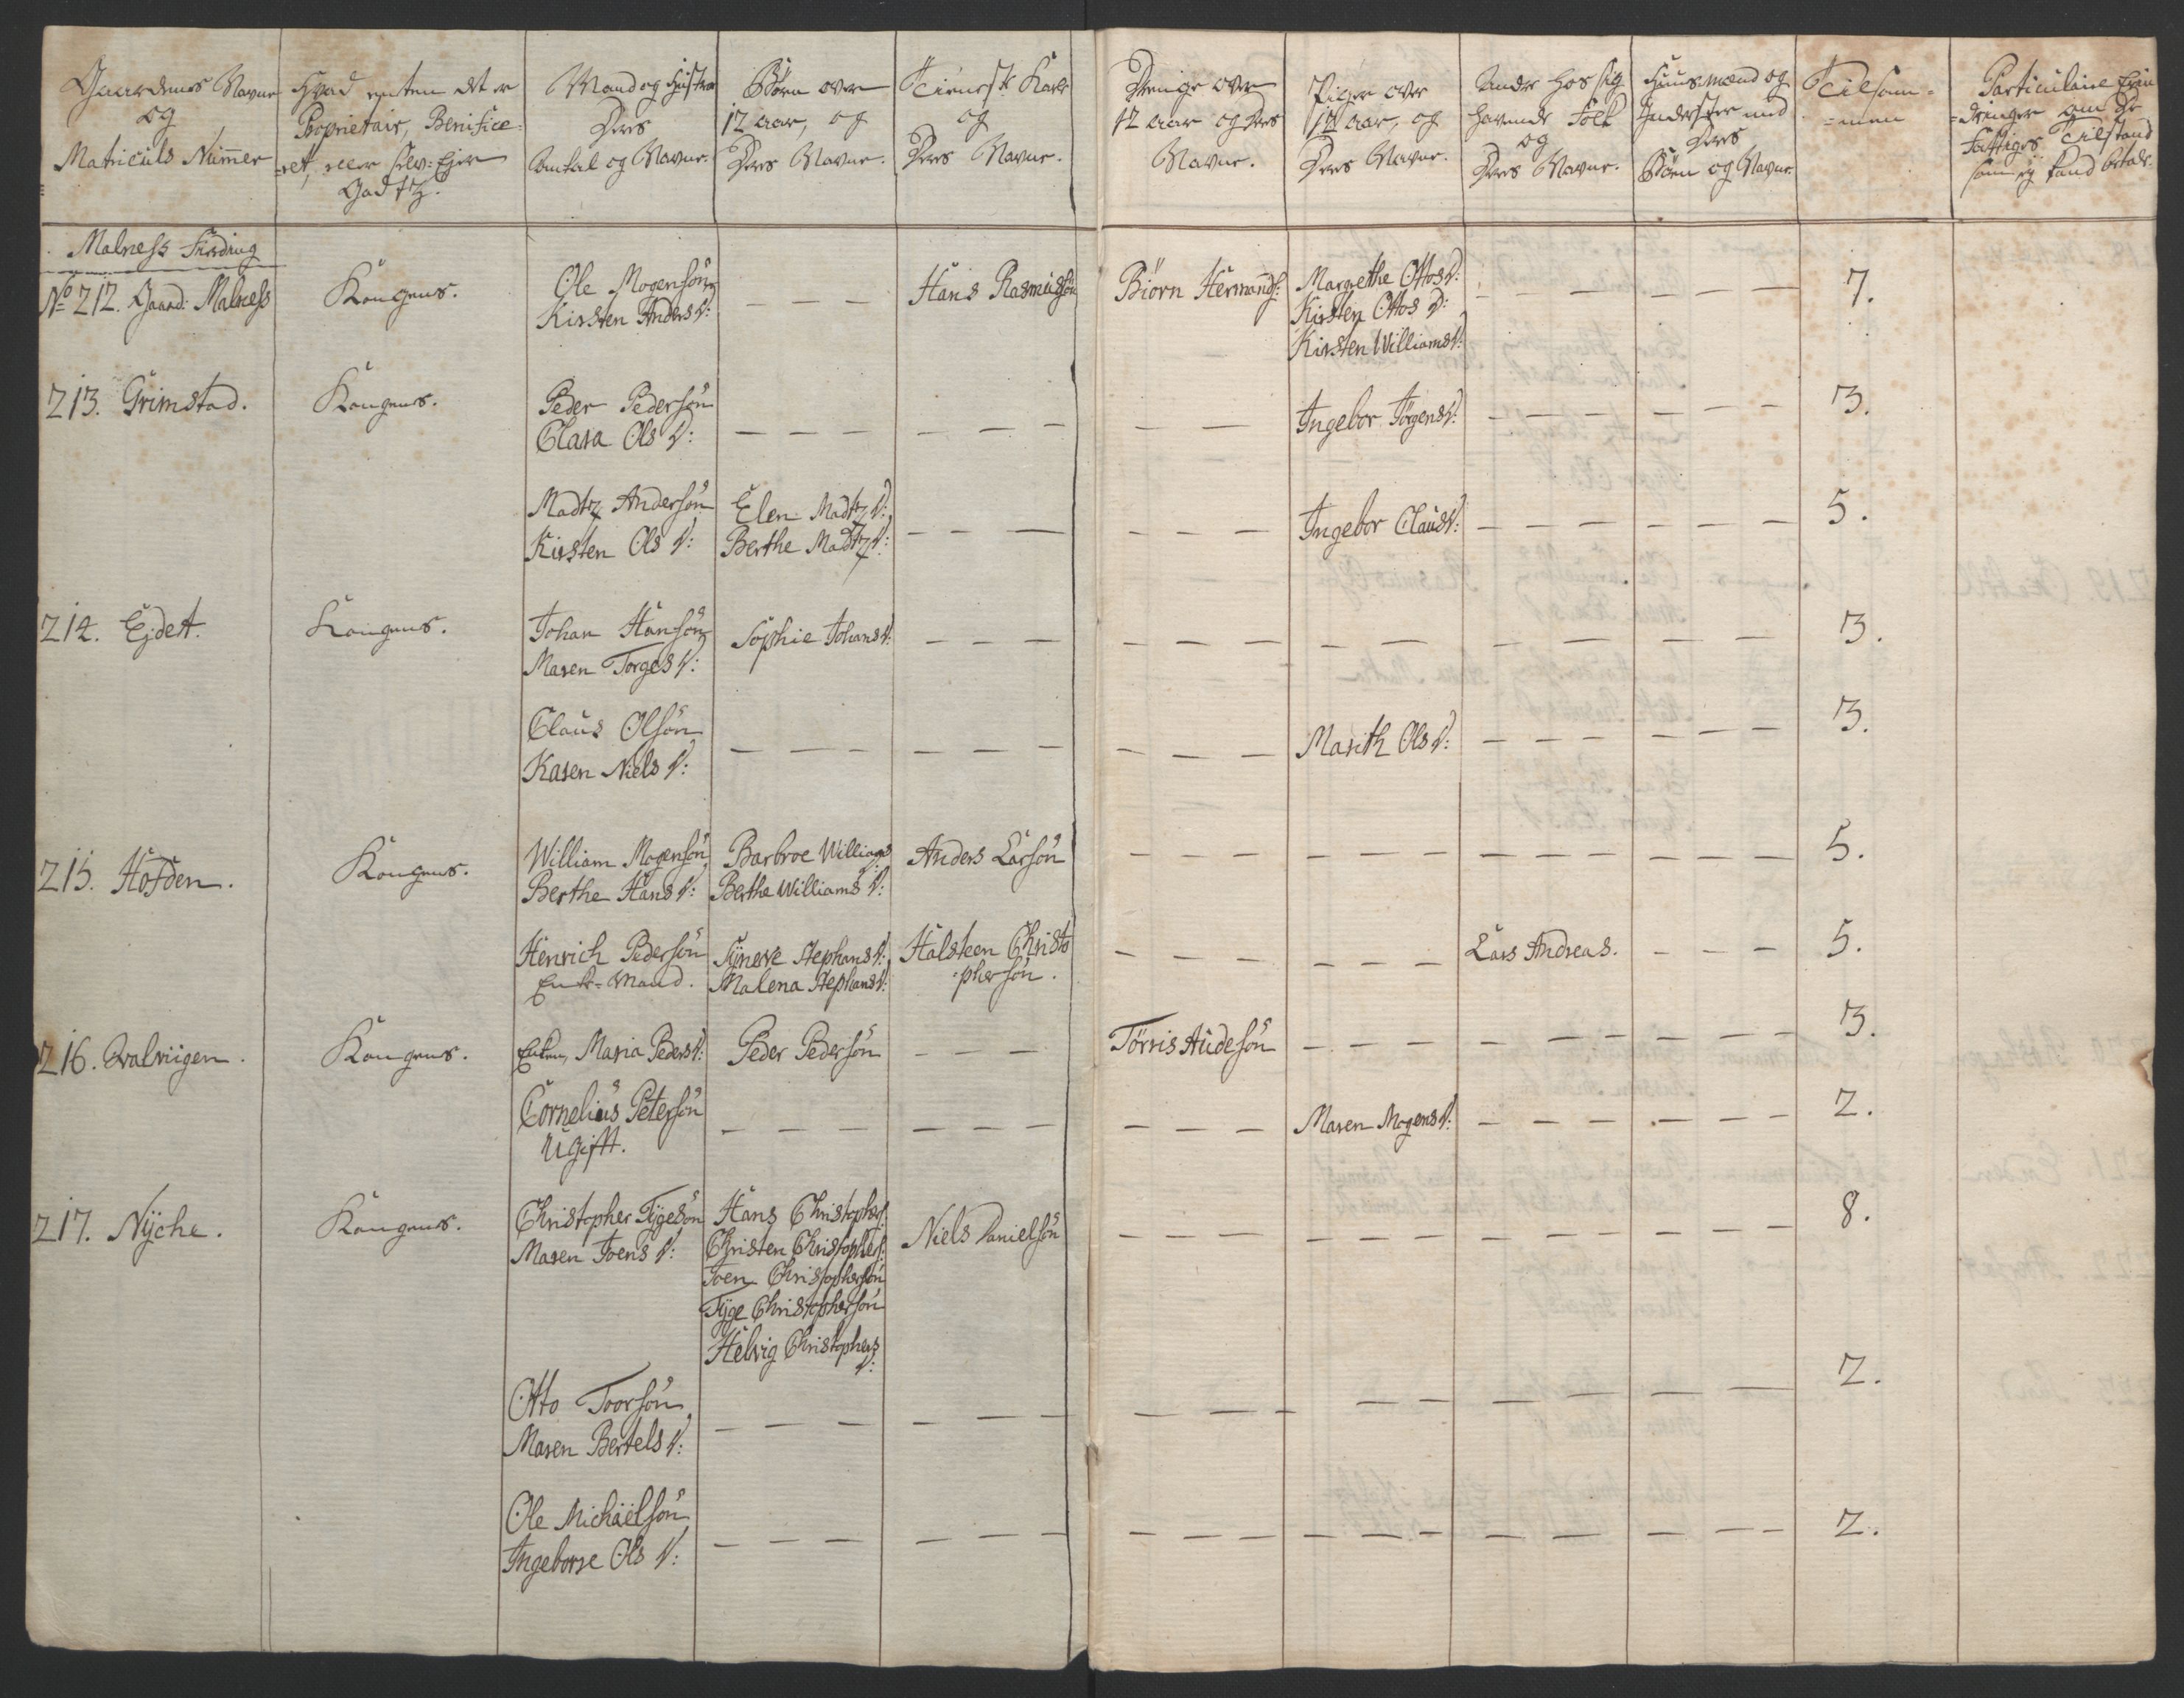 Gaardenes Navne
og
Matriculs Nummer
Hvad enten det er
Proprietair, Benifice-
-ret, eller selv-Ejer
Godtz.
Mand og Hustroe
Deres
Antal og Navne.
Børn over
12 aar, og
Deres Navne.
Tieneste Karle
og
Deres Navne.
Drenge over
12 aar og Deres
Navne.
Piger over
12 aar, og
Deres Navne.
Andre hos sig
havende Folk
og
Deres Navne.
Huusmænd og
Inderster med
Deres
Børn og Navne.
Tilsam-
-men
Particulaire Erin-
-dringer om De
Fattiges Tilstand
som ej kand betale.
Malness Fierding
No 212. Gaard: Malness
Kongens.
Ole Mogensøn
Kirsten Anders D:
— — —
Hans Rasmusøn
Biørn Hermands:
Margrethe Ottos D:
Kirsten Ottos D:
Kirsten Williams D:
7.
213. Grimstad.
Kongens.
Peder Pedersøn
Clara Ols D:
Ingebor Jørgens D:
3.
Madtz Andersøn
Kirsten Ols D:
Elen Madtz D:
Berthe Madtz D:
Ingebor Claus D:
5.
214. Ejdet.
Kongens.
Johan Hansøn
Maren Torges D:
Sophie Johans D:
3.
Claus Olsøn
Karen Niels D:
Marith Ols D:
3.
215. Hofden.
Kongens.
William Mogensøn
Berthe Hans D:
Barbroe Williams
D:
Berthe Williams D:
Anders Larsøn
5.
Henrich Pedersøn
Enke-Mand.
Synneve Stephans D:
Malena Stephans D:
Halsteen Christo
-phersøn.
Lars Andreas.
5.
216. Qvalviigen.
Kongens.
Enken, Maria Peders D:
Peder Pedersøn
Tørris Audesøn
3.
Cornelius Petersøn
Ugift.
Maren Mogens D:
2.
217. Nyche.
Kongens.
Christopher Tygesøn
Maren Joens D:
Hans Christophers:
Christen Christophers:
Joen Christophersøn
Tyge Christophersøn
Helvig Christophers
D:
Niels Danielsøn
8.
Otto Toorsøn
Maren Bertels D:
2.
Ole Michaelsøn
Ingeborre Ols D:
2.